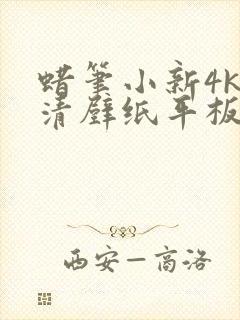 蜡笔小新4K
清壁纸平板
西安—高洛